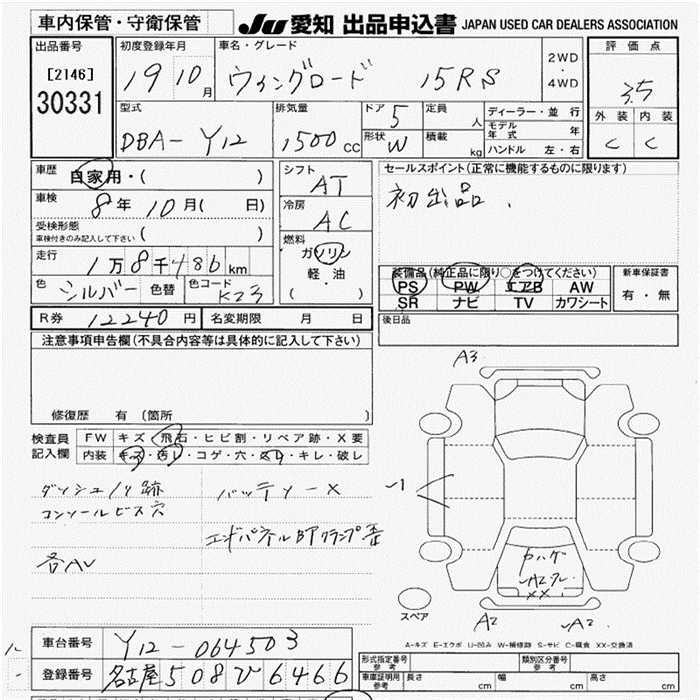 車内保管・守衛保管
JU 愛知 出品申込書 JAPAN USED CAR DEALERS ASSOCIATION
出品番号 [2146] 30331
初度登録年月 19 10月
車名・グレード ウィングロード 15RS
2WD・4WD
評価点 3.5
外装 C 内装 C
型式 DBA-Y12
排気量 1500cc
ドア 5
形状 W
定員 人
積載 kg
ディーラー・並行
モデル年式 年
ハンドル 左・右
車歴 自家用・( )
車検 8年10月( 日)
受検形態 車検付きのみ記入して下さい ( )
走行 1万8千486km
色 シルバー 色替 色コード K23
シフト AT
冷房 AC
燃料 ガソリン 軽・油 ( )
セールスポイント(正常に機能するものに限ります)
初出品.
装備品(純正品に限り○をつけてください)
PS PW エアB AW
SR ナビ TV カワシート
新車保証書
有・無
R券 12240円 名変期限 月 日
後日品
注意事項申告欄(不具合内容等は具体的に記入して下さい)
修復歴 有(箇所 )
検査員記入欄
FW キズ・飛石・ヒビ割・リペア跡・X要
内装 キズ・汚レ・コゲ・穴・スレ・キレ・破レ
ダッシュノリ跡
コンソールビス穴
バッテリーX
エンドパネル BTクランプ歪
各AU
A3
A2
スペア
A-キズ E-エクボ U-凹み W-補修跡 S-サビ C-腐食 XX-交換済
車台番号 Y12-064503
登録番号 名古屋508ひ6466
形式指定番号 参考
類別区分番号 参考
車庫証明用 参考 長さ cm 幅 cm 高さ cm